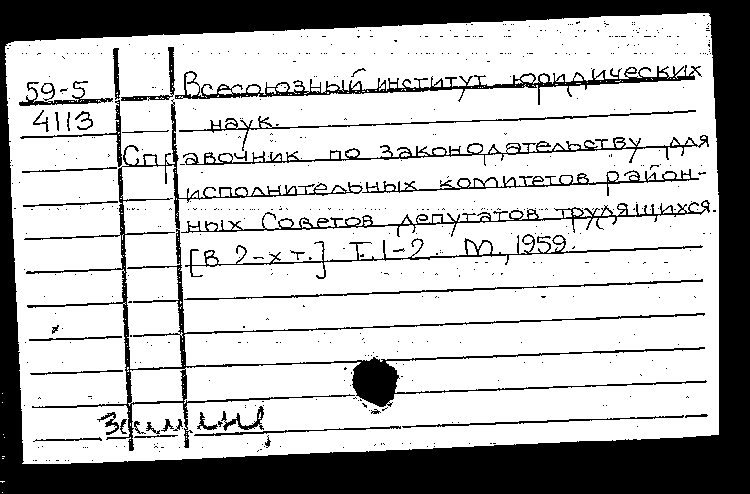 59-5 Всесоюзный институт юридических
4113 наук.
Справочник по законодательству для
исполнительных комитетов район-
ных Советов депутатов трудящихся.
[В 2-х т.] Т. 1-2 М., 1959.